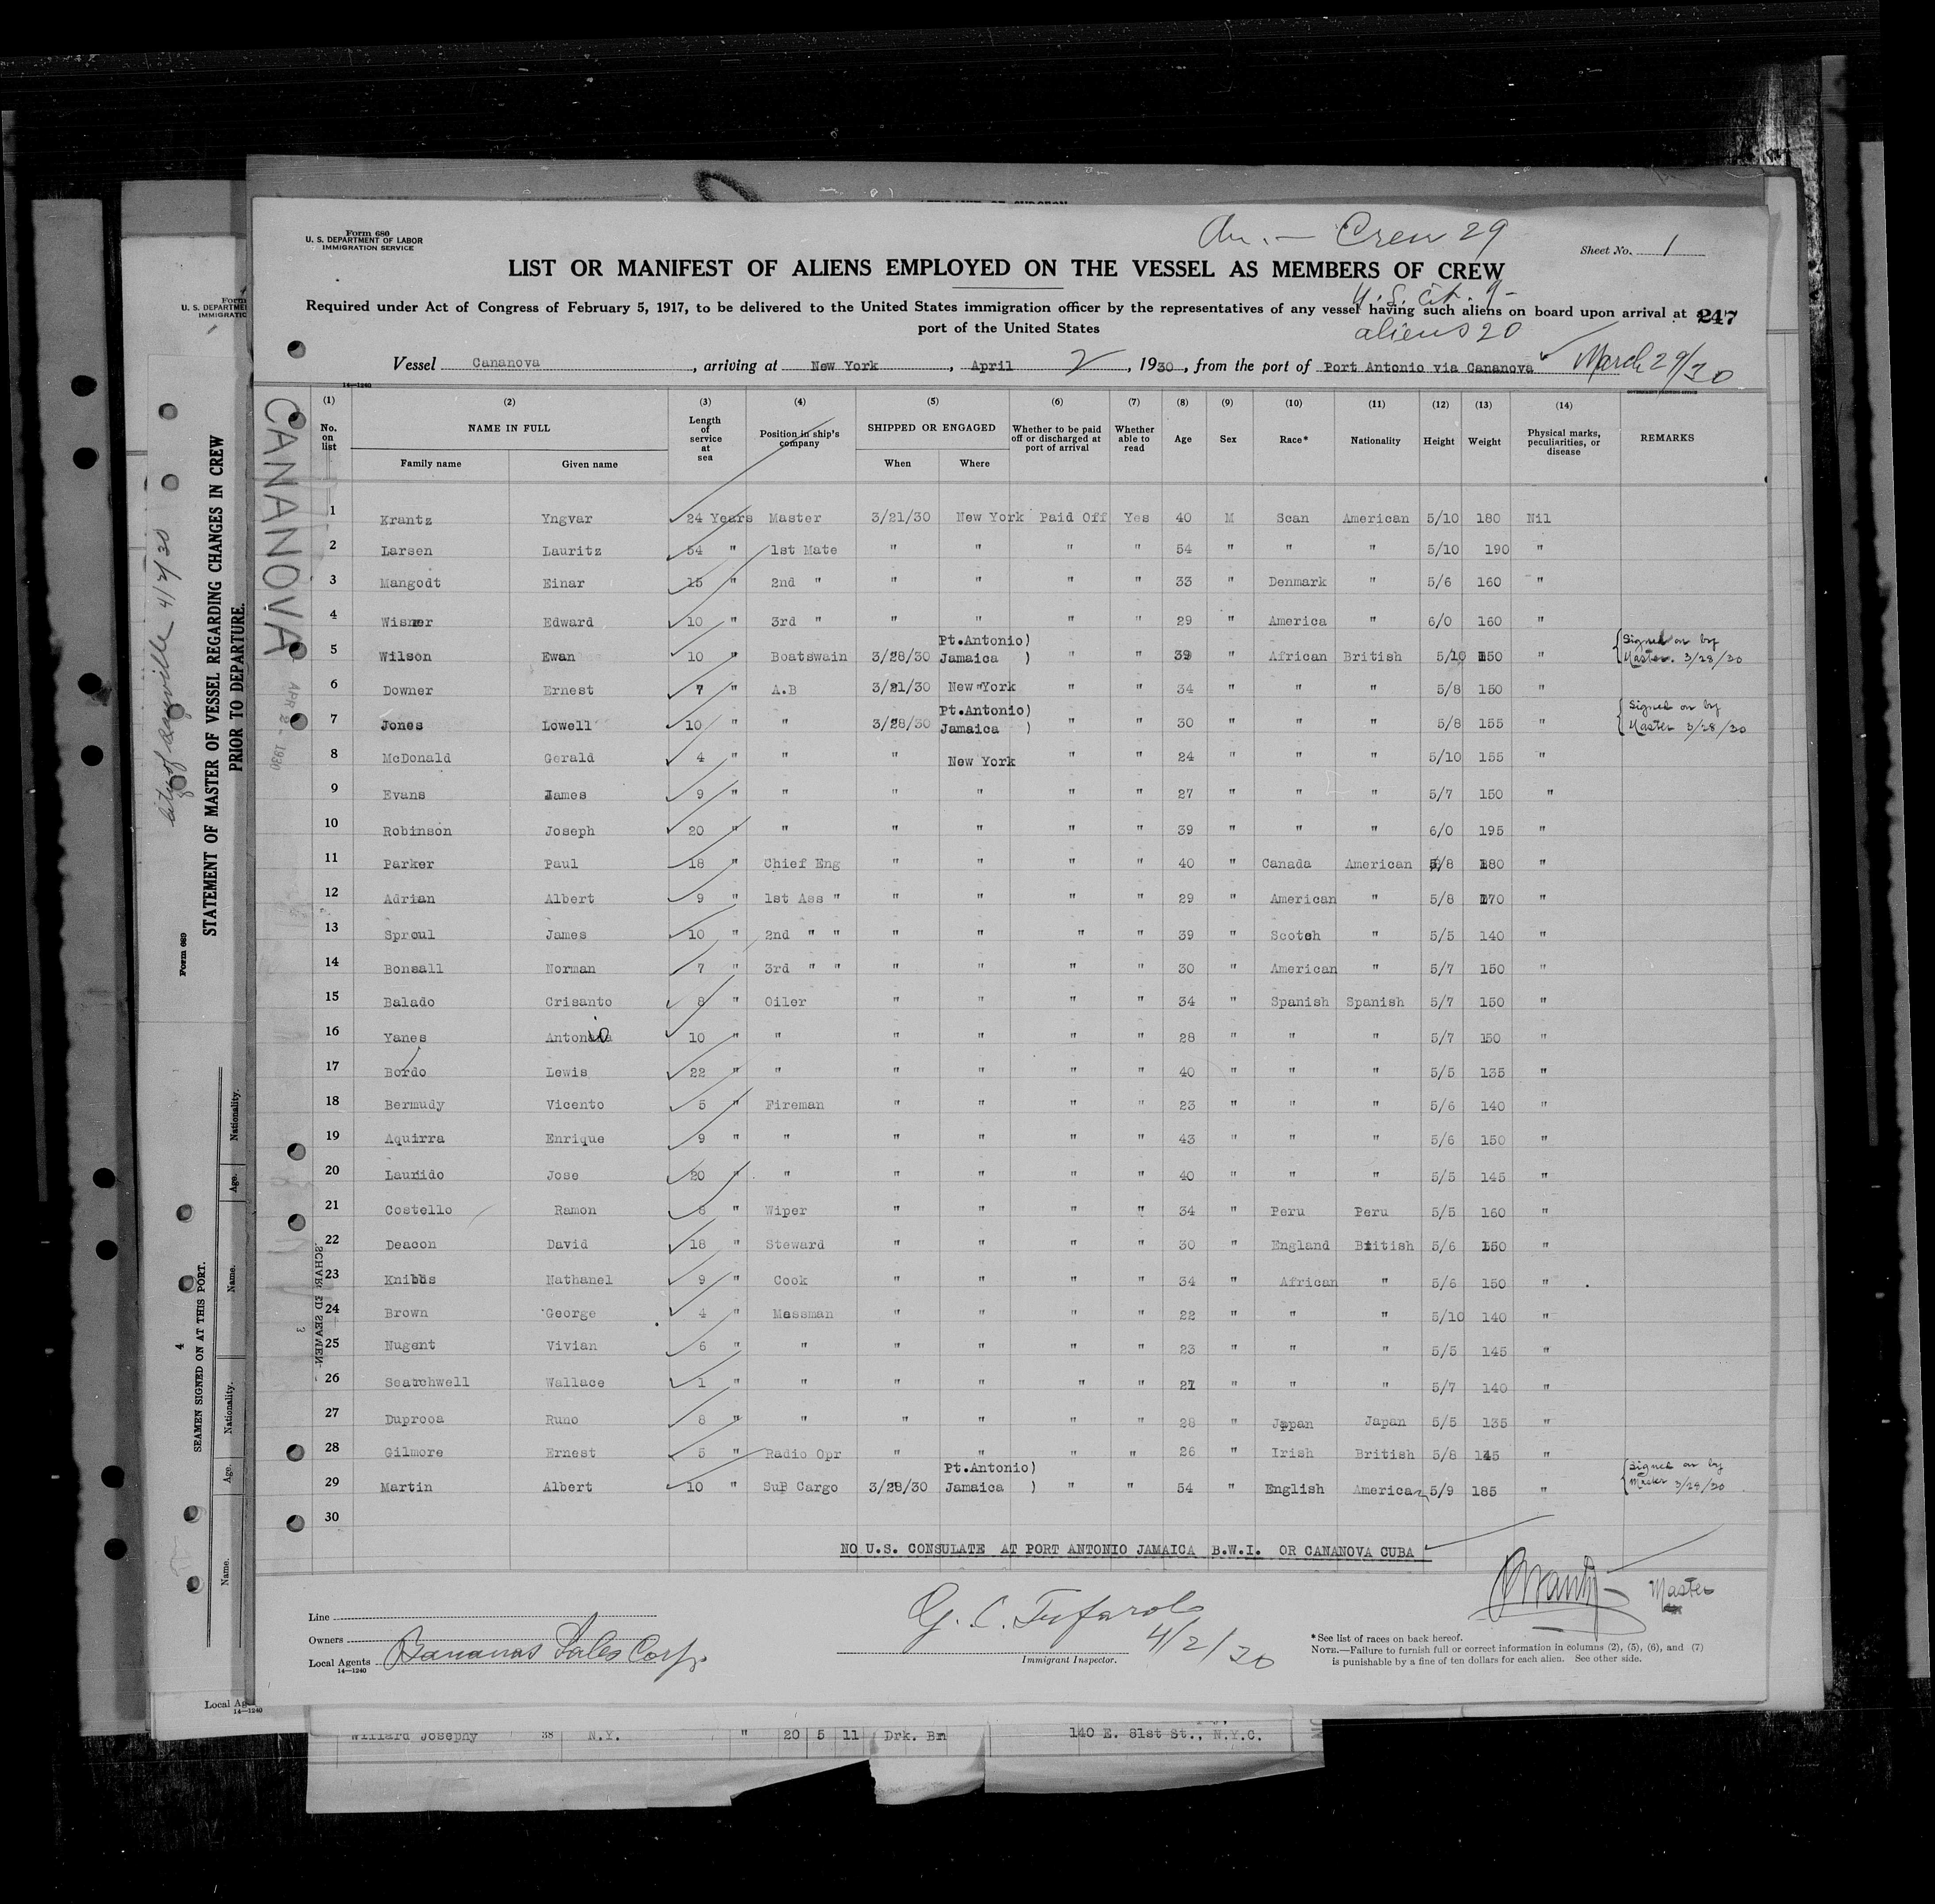 Form 680
U. S. DEPARTMENT OF LABOR
IMMIGRATION SERVICE
Crew 29
Sheet No. 1
LIST OR MANIFEST OF ALIENS EMPLOYED ON THE VESSEL AS MEMBERS OF CREW
U.S. cit. 9-
Required under Act of Congress of February 5, 1917, to be delivered to the United States immigration officer by the representatives of any vessel having such aliens on board upon arrival at a
247
port of the United States
aliens 20
Vessel Cananova, arriving at New York, April 2, 1930, from the port of Port Antonio via Cananova March 29/30
14—1240
GOVERNMENT PRINTING OFFICE
(1) (2) (3) (4) (5) (6) (7) (8) (9) (10) (11) (12) (13) (14)
No. on list NAME IN FULL Length of service at sea Position in ship's company SHIPPED OR ENGAGED Whether to be paid off or discharged at port of arrival Whether able to read Age Sex Race* Nationality Height Weight Physical marks, peculiarities, or disease REMARKS
Family name Given name When Where
1 Krantz Yngvar 24 Years Master 3/21/30 New York Paid Off Yes 40 M Scan American 5/10 180 Nil
2 Larsen Lauritz 54 " 1st Mate " " " " 54 " " " 5/10 190 "
3 Mangodt Einar 15 " 2nd " " " " " 33 " Denmark " 5/6 160 "
4 Wisner Edward 10 " 3rd " " " " " 29 " America " 6/0 160 "
5 Wilson Ewan 10 " Boatswain 3/28/30 Pt.Antonio) Jamaica ) " " 39 " African British 5/10 150 " Signed on by Master. 3/28/30
6 Downer Ernest 7 " A.B 3/21/30 New York " " 34 " " " 5/8 150 "
7 Jones Lowell 10 " " 3/28/30 Pt.Antonio) Jamaica ) " " 30 " " " 5/8 155 " Signed on by Master 3/28/30
8 McDonald Gerald 4 " " " New York " " 24 " " " 5/10 155 "
9 Evans James 9 " " " " " " 27 " " " 5/7 150 "
10 Robinson Joseph 20 " " " " " " 39 " " " 6/0 195 "
11 Parker Paul 18 " Chief Eng " " " " 40 " Canada American 5/8 180 "
12 Adrian Albert 9 " 1st Ass " " " " " 29 " American " 5/8 170 "
13 Sproul James 10 " 2nd " " " " " " 39 " Scotch " 5/5 140 "
14 Bonsall Norman 7 " 3rd " " " " " " 30 " American " 5/7 150 "
15 Balado Crisanto 8 " Oiler " " " " 34 " Spanish Spanish 5/7 150 "
16 Yanes Antonio 10 " " " " " " 28 " " " 5/7 150 "
17 Bordo Lewis 22 " " " " " " 40 " " " 5/5 135 "
18 Bermudy Vicento 5 " Fireman " " " " 23 " " " 5/6 140 "
19 Aquirra Enrique 9 " " " " " " 43 " " " 5/6 150 "
20 Laurido Jose 20 " " " " " " 40 " " " 5/5 145 "
21 Costello Ramon 8 " Wiper " " " " 34 " Peru Peru 5/5 160 "
22 Deacon David 18 " Steward " " " " 30 " England British 5/6 150 "
23 Knibbs Nathanel 9 " Cook " " " " 34 " African " 5/6 150 "
24 Brown George 4 " Messman " " " " 22 " " " 5/10 140 "
25 Nugent Vivian 6 " " " " " " 23 " " " 5/5 145 "
26 Seatchwell Wallace 1 " " " " " " 27 " " " 5/7 140 "
27 Duprooa Runo 8 " " " " " " 28 " Japan Japan 5/5 135 "
28 Gilmore Ernest 5 " Radio Opr " " " " 26 " Irish British 5/8 145 "
29 Martin Albert 10 " SuP Cargo 3/28/30 Pt.Antonio) Jamaica ) " " 54 " English American 5/9 185 " Signed on by Master 3/28/30
30
NO U.S. CONSULATE AT PORT ANTONIO JAMAICA B.W.I. OR CANANOVA CUBA
Krantz Master
Line
Owners
Local Agents Bananas Sales Corp.
14—1240
G. C. Tufarolo
4/2/30
Immigrant Inspector.
*See list of races on back hereof.
NOTE.—Failure to furnish full or correct information in columns (2), (5), (6), and (7)
is punishable by a fine of ten dollars for each alien. See other side.
CANANOVA
APR 2 - 1930
STATEMENT OF MASTER OF VESSEL REGARDING CHANGES IN CREW
PRIOR TO DEPARTURE.
Form 689
4/2/30
SEAMEN SIGNED ON AT THIS PORT.
4
Name. Age. Nationality. Name. Age. Nationality.
3
Form
U. S. DEPARTME
IMMIGRATIO
Local Ag
14—1240
Willard Josephy 38 N.Y. " 20 5 11 Drk. Bn 140 E. 81st St., N.Y.C.